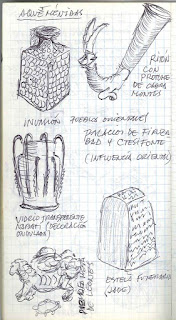 AQUEMENIDAS
RITÓN
CON
PROTOME
DE CABRA
MONTES
INVASIÓN PUEBLOS ORIENTALES
PALACIOS DE FIRUZA
BAD Y CTESIFONTE
(INFLUENCIA ORIENTAL)
VIDRIO TRANSPARENTE
(DECORACIÓN
ONDULADA)
ESTELA FUNERARIA
DE